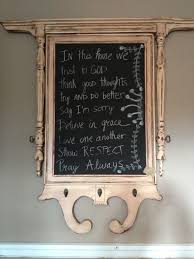 In this home we
trust in GOD
think good thoughts
Try and do better
Say I'm sorry
Believe in grace
Love one another
Show RESPECT
Pray Always